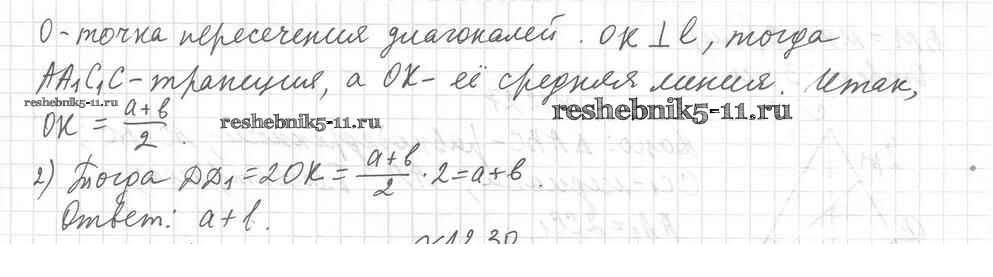 O - точка пересечения диагоналей. OK ⊥ l, тогда
AA₁C₁C - трапеция, а OK - её средняя линия. Итак,
reshebnik5-11.ru
reshebnik5-11.ru
OK = (a+b)/2.
reshebnik5-11.ru
2) Тогда DD₁ = 2OK = (a+b)/2 · 2 = a+b.
Ответ: a+b.